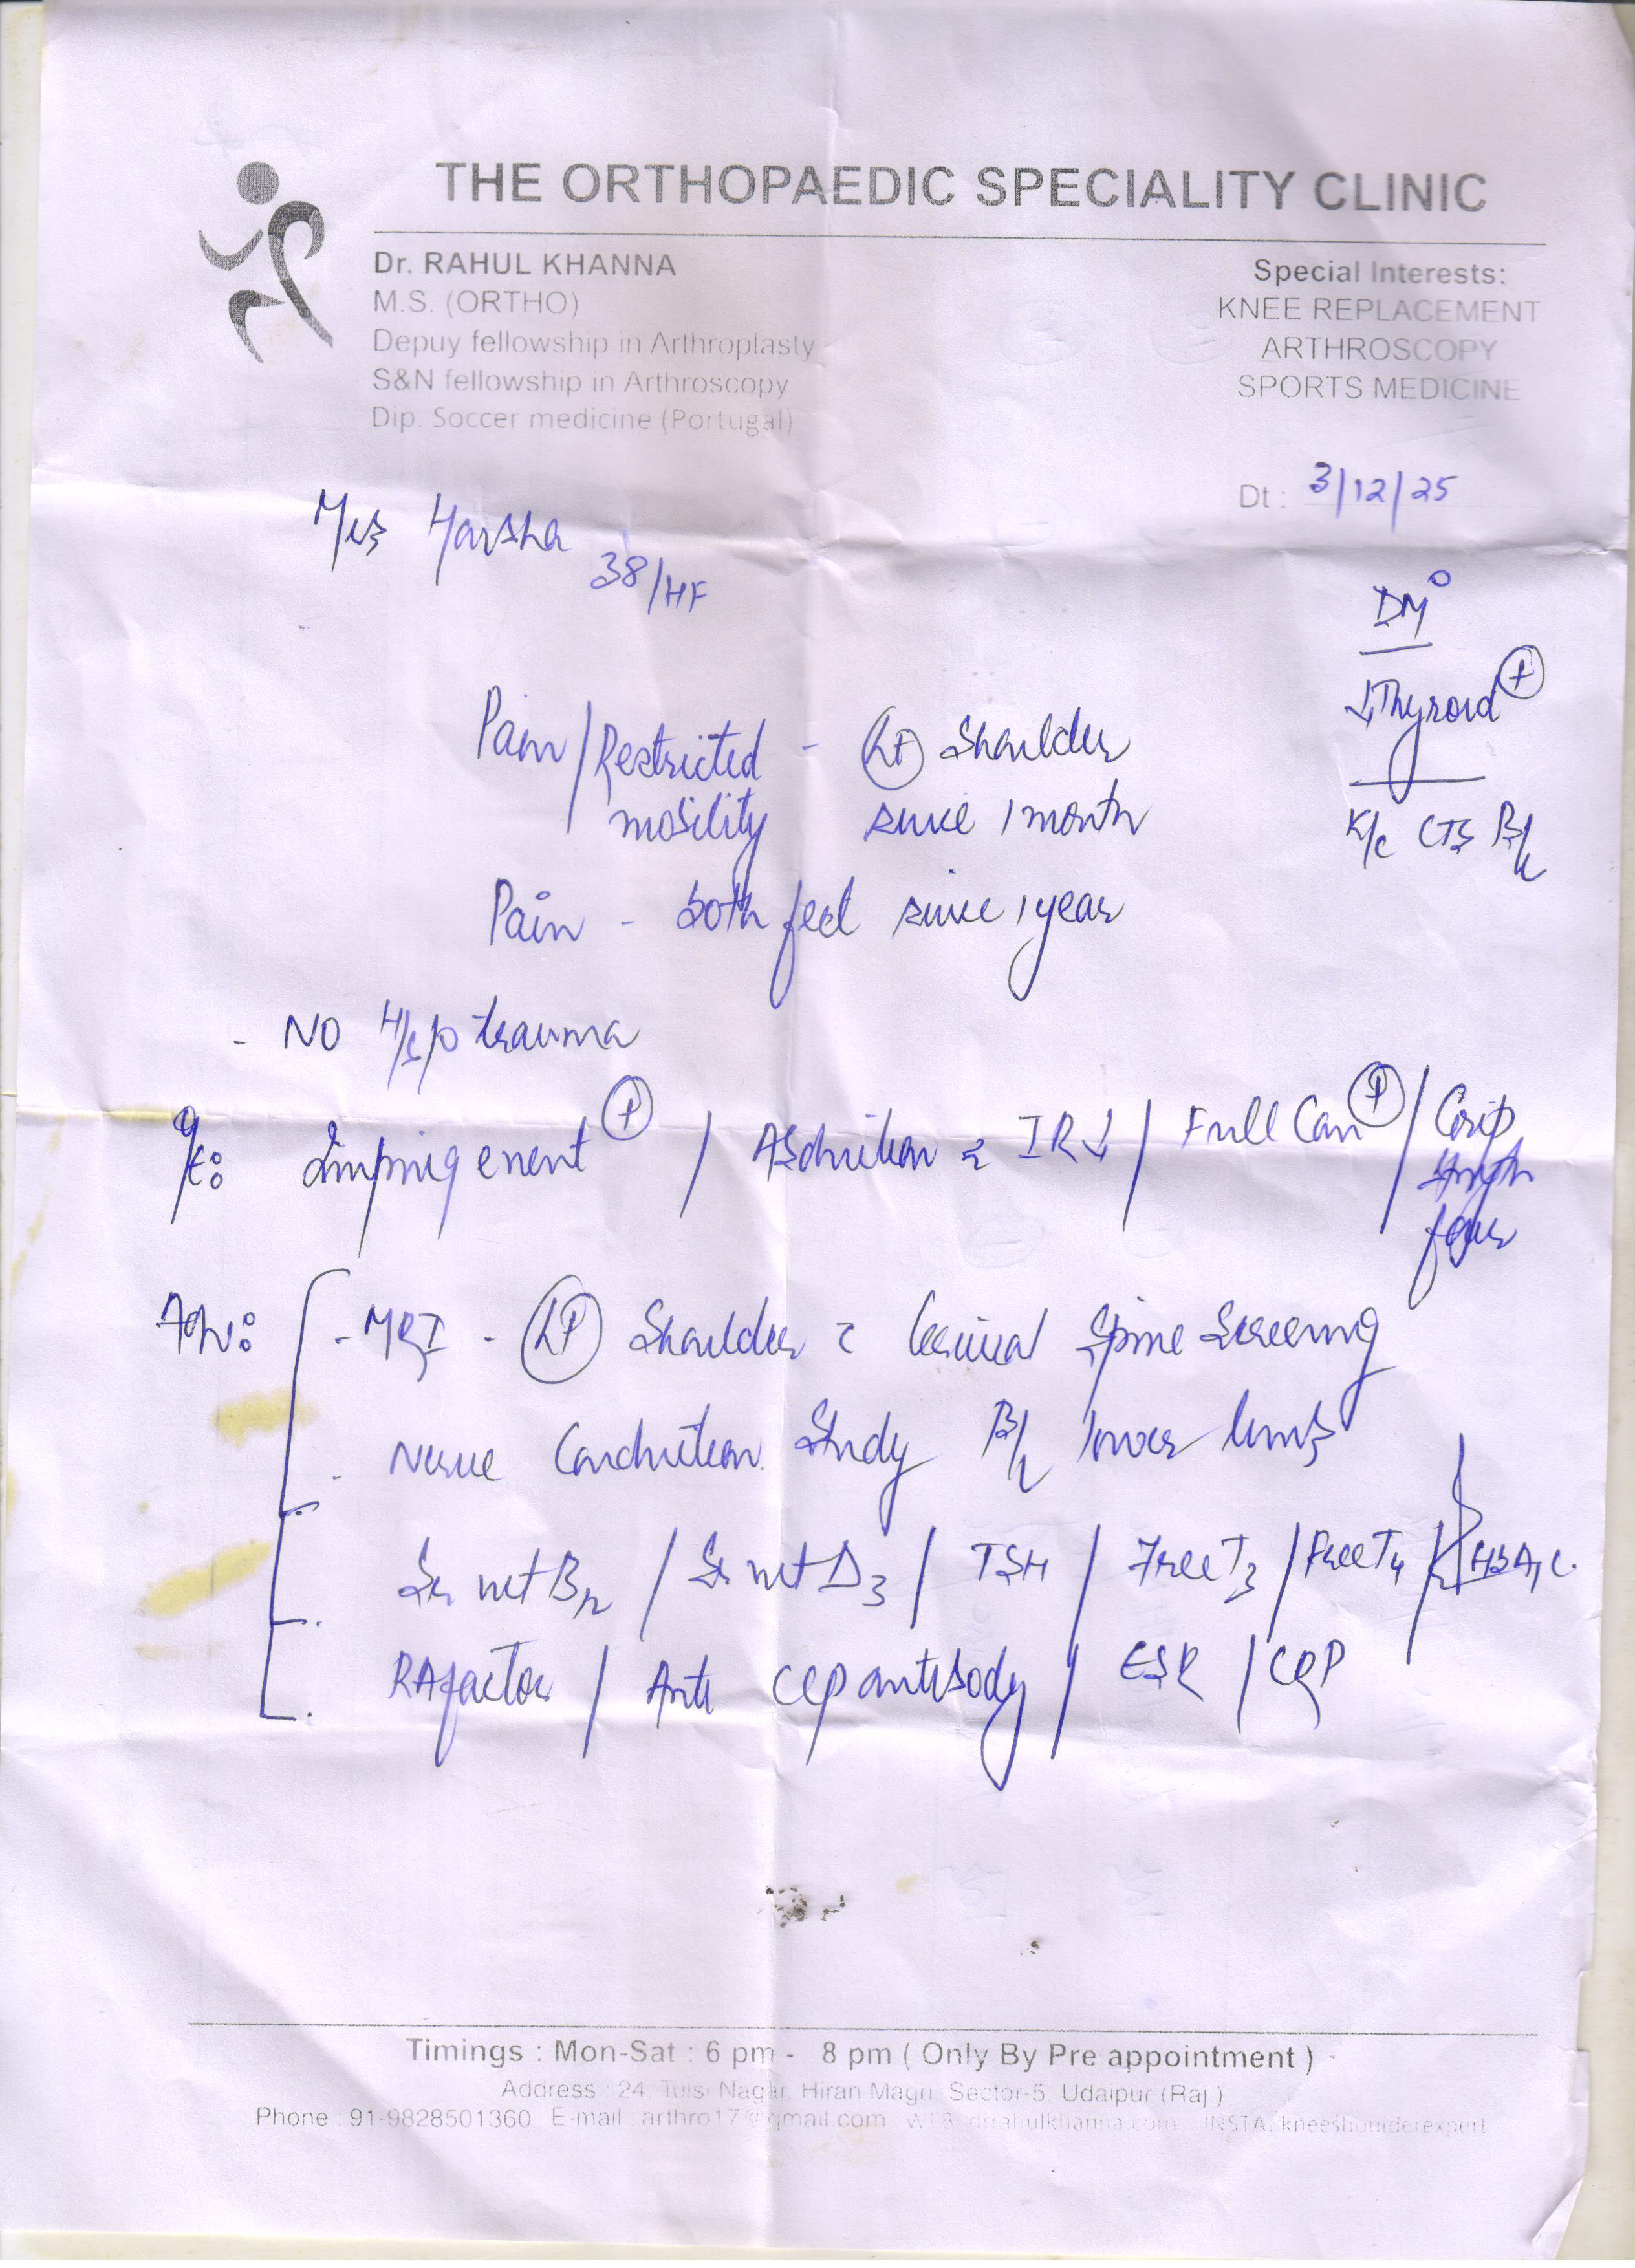 THE ORTHOPAEDIC SPECIALITY CLINIC
Dr. RAHUL KHANNA
M.S. (ORTHO)
Depuy fellowship in Arthroplasty
S&N fellowship in Arthroscopy
Dip. Soccer medicine (Portugal)
Special Interests:
KNEE REPLACEMENT
ARTHROSCOPY
SPORTS MEDICINE
Dt : 3/12/25
Mrs Harsha 38/HF
DM°
↓Thyroid +
K/c CTS B/L
Pain/Restricted mobility - Lt Shoulder since 1 month
Pain - both feet since 1 year
- NO H/s/o trauma
O/E: Impingement + / Abduction & IR↓ / Full Can + / Grip
Adv:
- MRI - Lt Shoulder c Cervical Spine Screening
- Nerve Conduction Study B/L lower limbs
Sr vit B12 / Sr vit D3 / TSH / Free T3 / Free T4 / HbA1C.
RA factor / Anti CCP antibody / ESR / CRP
Timings : Mon-Sat : 6 pm - 8 pm ( Only By Pre appointment )
Address : 24, Tulsi Nagar, Hiran Magri, Sector-5, Udaipur (Raj.)
Phone : 91-9828501360 E-mail : arthro17@gmail.com WEB : drrahulkhanna.com INSTA : kneeshoulderexpert